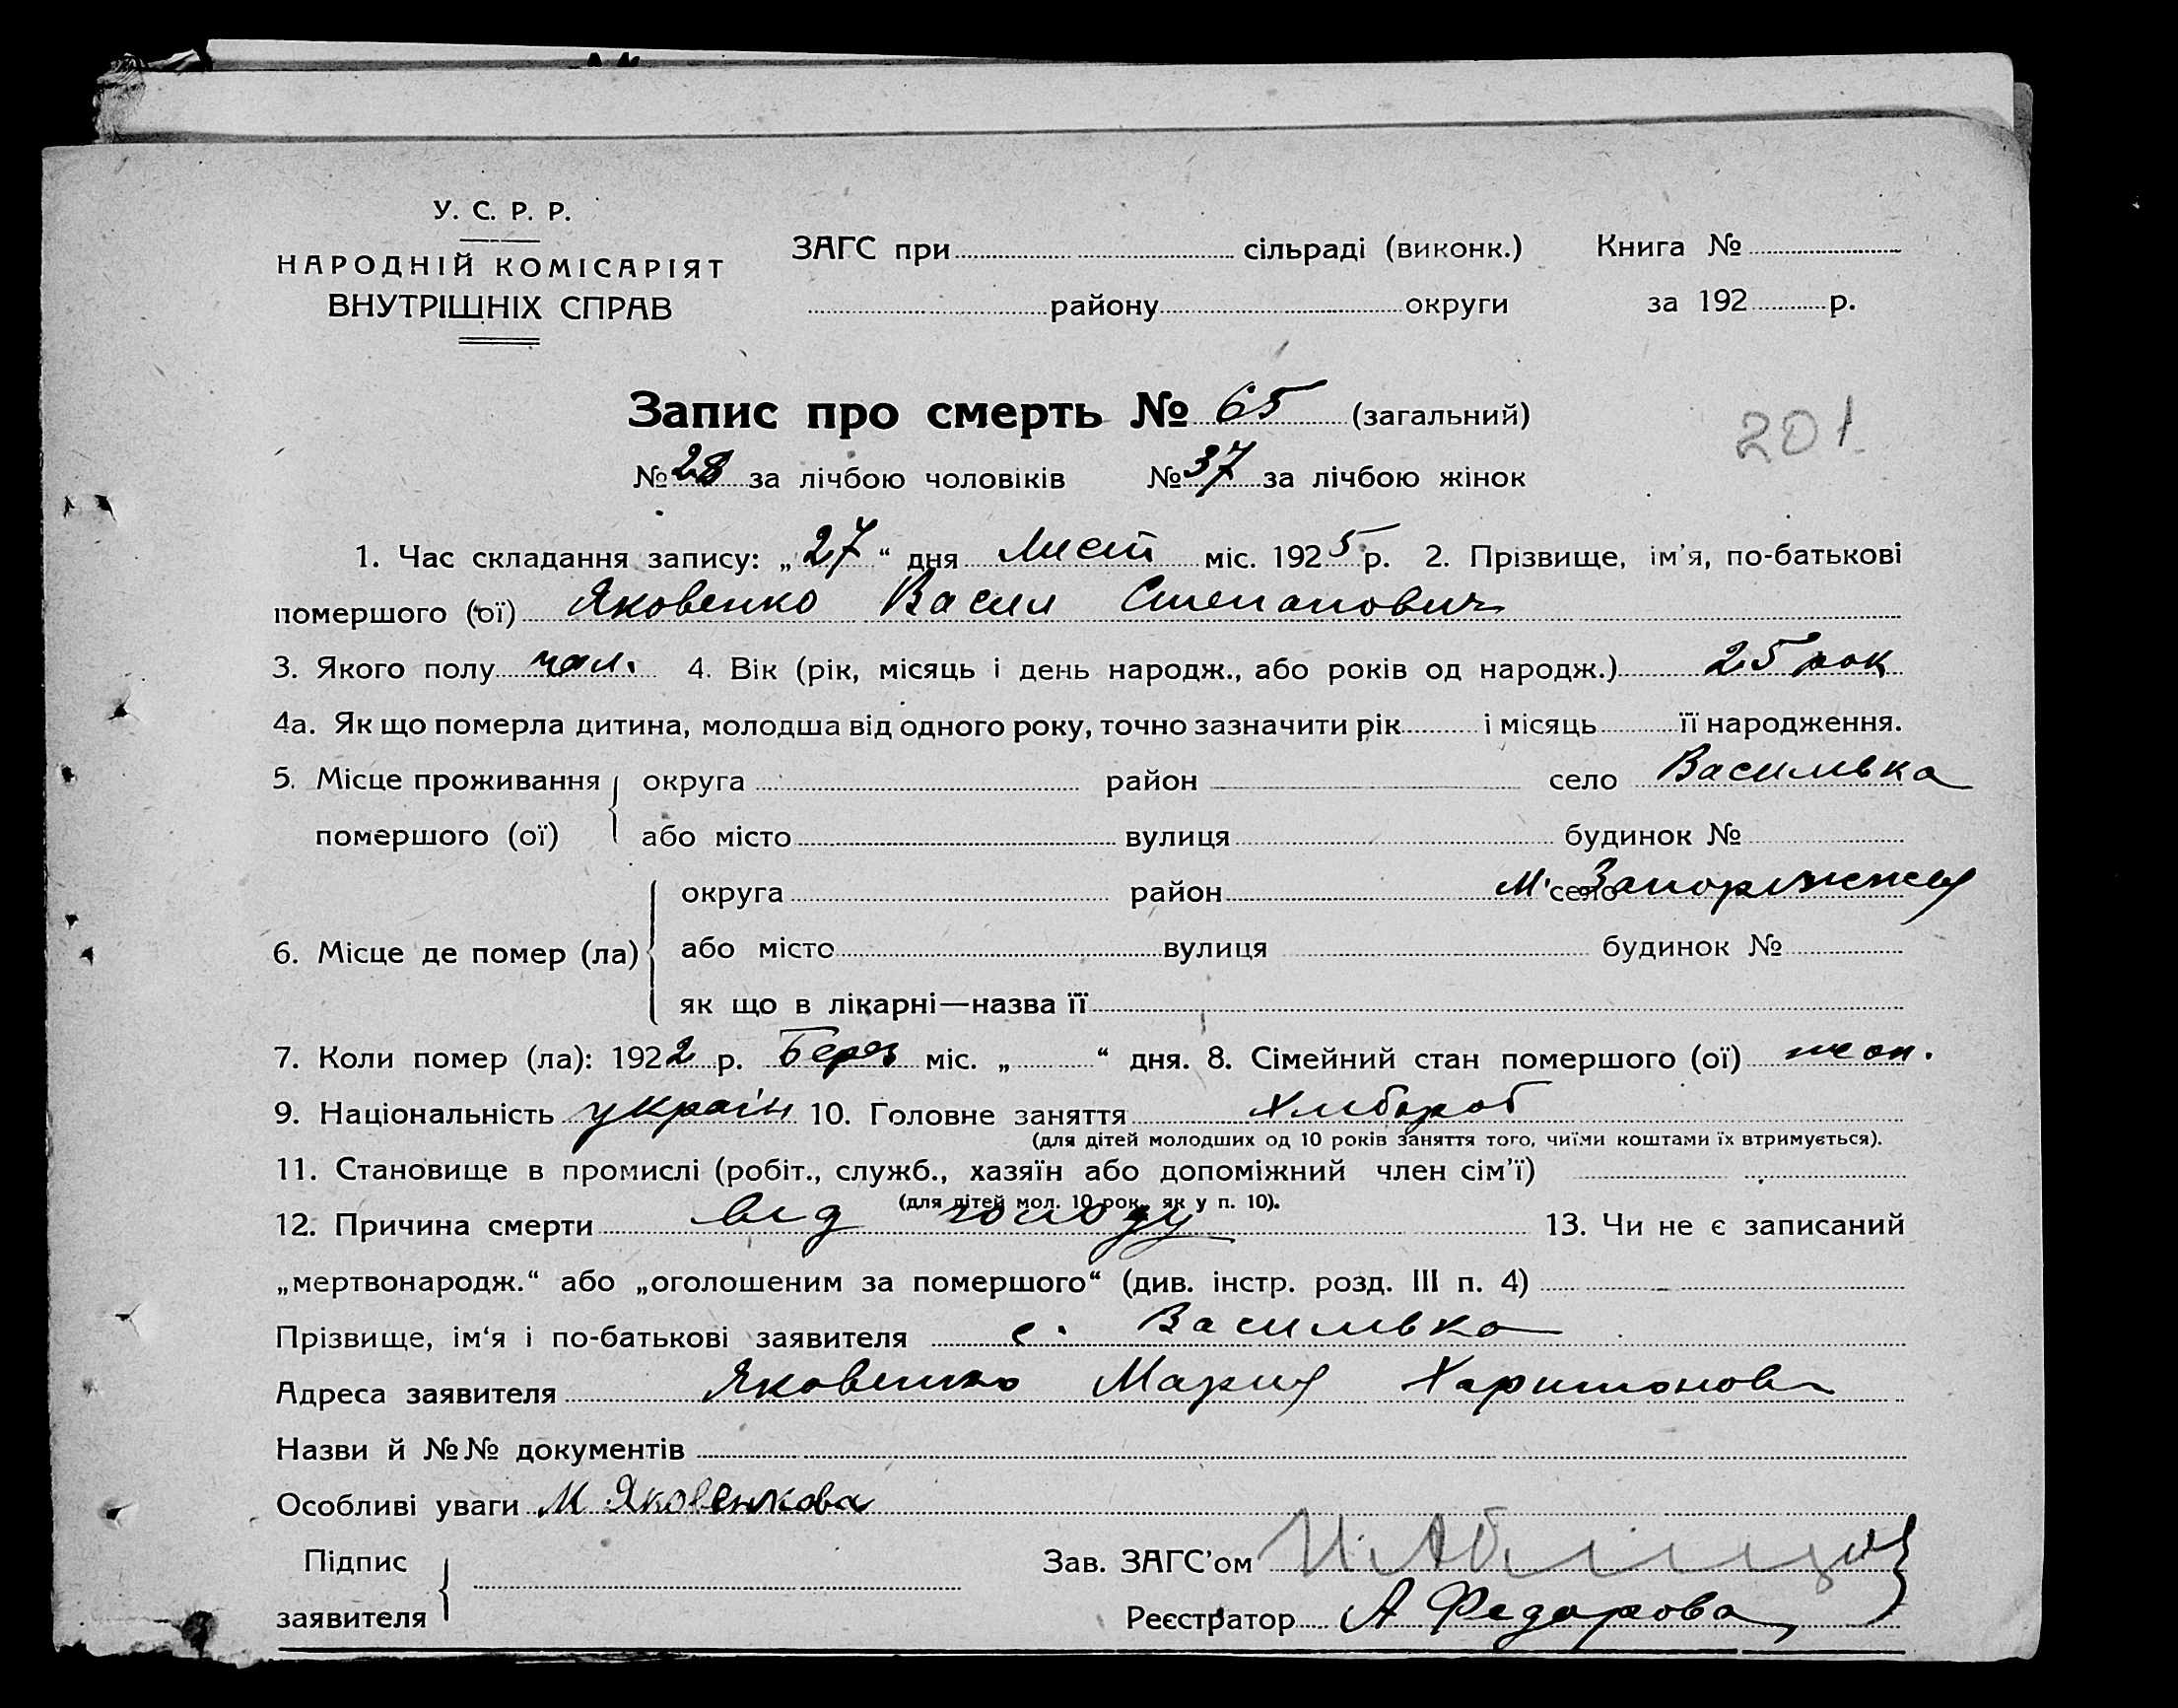 У. С. Р. Р.
НАРОДНІЙ КОМІСАРІЯТ
ВНУТРІШНІХ СПРАВ
ЗАГС при сільраді (виконк.) Книга №
району округи за 192 р.
Запис про смерть № 65 (загальний)
201
№ 28 за лічбою чоловіків № 37 за лічбою жінок
1. Час складання запису: „27“ дня Лист міс. 1925 р. 2. Прізвище, ім'я, по-батькові
помершого (ої) Яковенко Васил Степанович
3. Якого полу чол. 4. Вік (рік, місяць і день народж., або років од народж.) 25 рок
4а. Як що померла дитина, молодша від одного року, точно зазначити рік і місяць її народження.
5. Місце проживання округа район село Василивка
помершого (ої) або місто вулиця будинок №
округа район м. село Запоріжжя
6. Місце де помер (ла) або місто вулиця будинок №
як що в лікарні—назва її
7. Коли помер (ла): 1922 р. Берез міс. „ “ дня. 8. Сімейний стан помершого (ої) жон.
9. Національність україн 10. Головне заняття Хлибороб
(для дітей молодших од 10 років заняття того, чиїми коштами їх втримується).
11. Становище в промислі (робіт., служб., хазяїн або допоміжний член сім'ї)
(для дітей мол. 10 рок., як у п. 10).
12. Причина смерти від голоду 13. Чи не є записаний
„мертвонародж.“ або „оголошеним за помершого“ (див. інстр. розд. III п. 4)
Прізвище, ім'я і по-батькові заявителя с. Василивка
Адреса заявителя Яковенко Мария Харитонов
Назви й №№ документів
Особливі уваги М Яковенкова
Підпис
заявителя
Зав. ЗАГС'ом
Реєстратор А Федорова